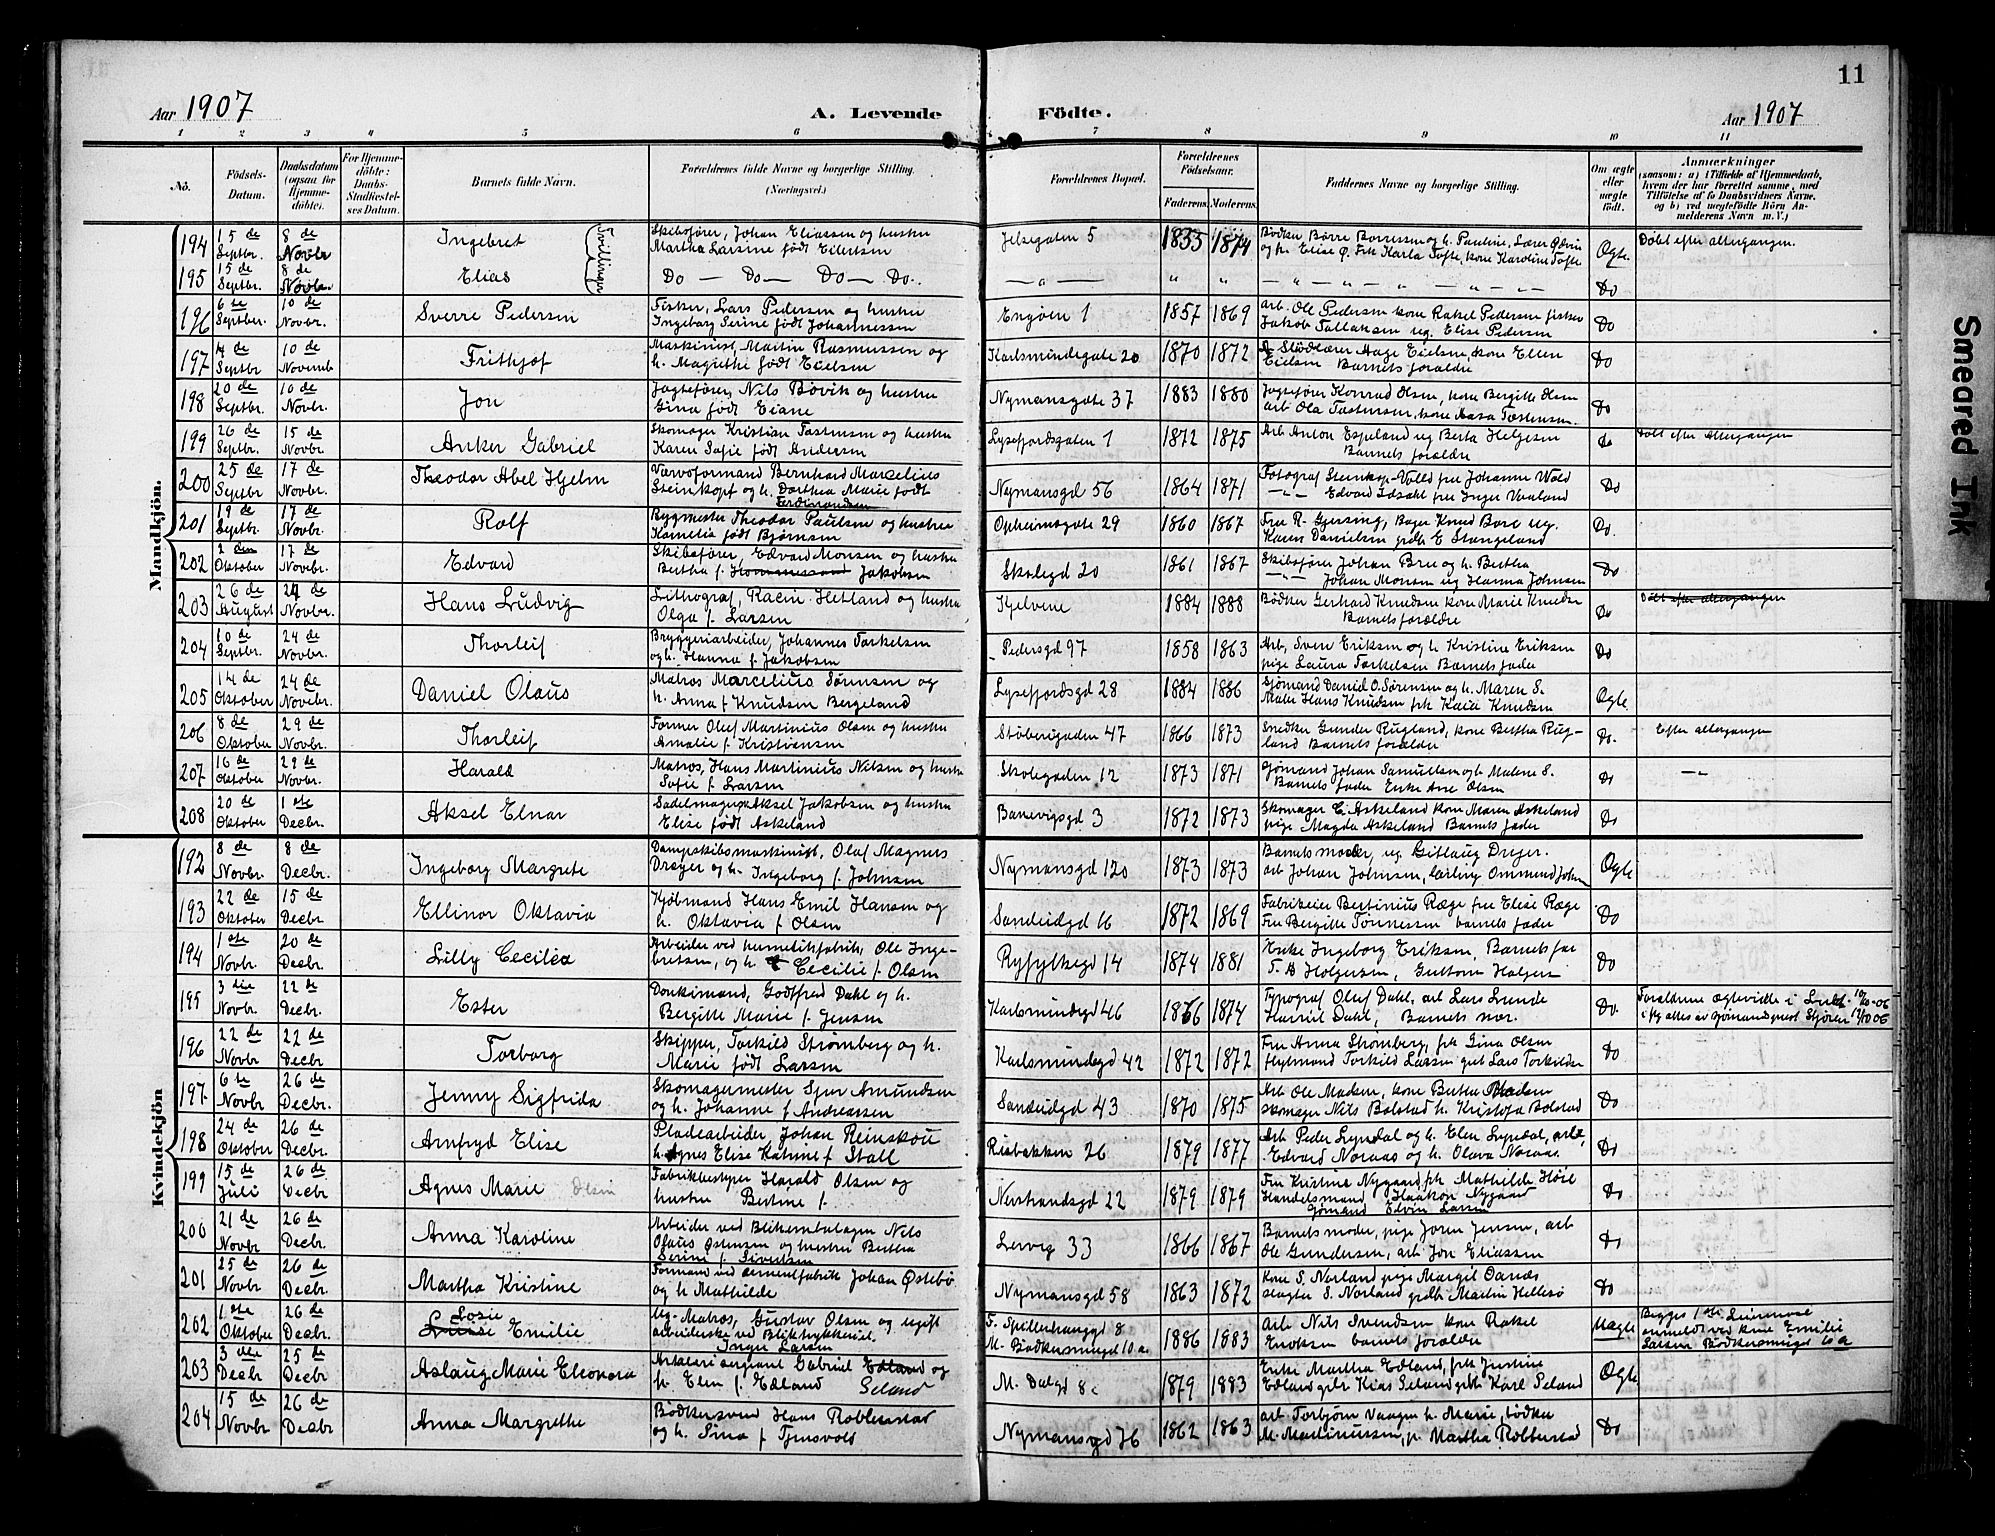 11
Aar 1907
A. Levende
Födte.
Aar 1907
1 2 3 4 5 6 7 8 9 10 11
No.
Födsels-Datum.
Daabsdatum (ogsaa for Hjemme-döbte).
For Hjemme-döbte: Daabs-Stadfæstel-ses Datum.
Barnets fulde Navn.
Forældrenes fulde Navne og borgerlige Stilling. (Næringsvei.)
Forældrenes Bopæl.
Forældrenes Födselsaar.
Faderens. Moderens.
Faddernes Navne og borgerlige Stilling.
Om ægte eller uægte födt.
Anmærkninger (saasom: a) i Tilfælde af Hjemmedaab, hvem der har forrettet samme, med Tilföielse af to Daabsvidners Navne. og b) ved uægtefödte Börn An-melderens Navn m. V.)
Mandkjön.
194 15de Septbr. 8de Novbr Ingebret Tvillinger Skibsfører, Johan Eliassen og hustru Martha Larsine født Eilertsen Jelsegaten 5 1874 Ogte. Døbt efter altergangen.
195 15de Septbr. 8de Novbr. Elias Do — Do — Do — Do. Do
196 6te Septber. 10de Novbr. Sverre Pedersen Fisker, Lars Pedersen og hustru Ingeborg Serine født Johannessen Engøen 1 1857 1869 Arb. Ole Pedersen kone Rakel Pedersen fisker Jakob Tallaksen ug. Elise Pedersen Do
197 4de Septbr 10de Novemb Frithjof Maskinist, Martin Rasmussen og h. Magrethe født Eielsen Karlsmindegate 20 1870 1872 Aage Eielsen, kone Ellen Eielsen Barnets forældre Do
198 20de Septbr. 10de Novbr. Jon Jagtefører, Nils Bøvik og hustru Gina født Eiane Nymansgate 37 1883 1880 Jagtefører Konrad Olsen, kone Bergitte Olsen arb Ola Tastensen, kone Aasa Tastensen. Do
199 26de Septbr. 15de Novbr. Anker Gabriel Skomager Kristian Tastensen og hustru Karen Sofie født Andersen Lysefjordsgaten 1 1872 1875 Arb. Anton Espeland ug Berta Helgesen Barnets forældre Do Døbt efter altergangen
200 25de Septbr 17de Novbr. Theodor Abel Hjelm Værvsformand Bernhard Marcelius Steinkopf og h. Dorthea Marie født Ferdinandsen Nymansgd 56 1864 1871 Fotograf Steenkop-Vold fru Johanne Wold Edvard Idsøhl fru Inger Vaaland Do
201 19de Septbr. 17de Novbr. Rolf Bygmester Theodor Paulsen og hustru Kamelia født Bjørnsen Opheimsgate 29 1860 1867 Fru R. Gjersing, Bager Knud Bore ug. Karen Danielsen grdb E Stangeland Do.
202 2den Oktober 17de Novebr. Edvard Skibsfører, Edvard Monsen og hustru Bertha f. Jakobsen Skolegd 20 1861 1867 Skibsfører Johan Bru og h. Bertha Johan Monsen ug Hanna Johnsen Do
203 26de August 24de Novbr. Hans Ludvig Lithograf, Racin Hetland og hustru Olga f. Larsen Kjelvene 1884 1888 Bødker Gerhard Knudsen kone Marie Knudsen Barnets forældre Do Døbt efter altergangen
204 10de Septbr. 24de Novbr. Thorleif Bryggeriarbeider, Johannes Torkelsen og h. Hanna f. Jakobsen Pedersgd 97 1858 1863 Arb. Svere Eriksen og h. Kristine Eriksen pige Laura Torkelsen Barnets fader Do
205 14de Oktober 24de Novebr. Daniel Olaus Matros Marcelius Sørensen og h. Anna f Knudsen Bergeland Lysefjordsgd 28 1884 1886 Sjømand Daniel O. Sørensen og h. Maren S. Maler Hans Knudsen frk Kaia Knudsen Ogte.
206 8de Oktober 29de Novbr. Thorleif Former Olef Martinius Olsen og hustru Amalie f Kristiensen Støberigaden 47 1866 1873 Snedker Gunder Rugland, kone Bertha Rug-land Barnets forældre Do. Efter altergangen
207 16de Oktober 29de Novbr. Harald Matros, Hans Martinius Nilsen og hustru Sofie f. Larsen Skolegaden 12 1873 1871 Sjømand Johan Samuelsen og h. Malene S. Barnets fader Enke Ane Olsen Do —„—
208 20de Oktober 1ste Decbr. Aksel Einar Sadelmager Aksel Jakobsen og hustru Elise født Askeland Banevigsgd 3 1872 1873 Skomager E. Askeland kone Maren Askeland pige Magda Askeland Barnets fader Do
Kvindekjön
192 8de Novbr. 8de Decbr. Ingeborg Margrete Dampskibsmaskinist, Olaf Magnus Dreyer og h. Ingeborg f. Johnsen Nymansgd 120 1873 1873 Barnets moder, ug. Gitlaug Dreyer. arb Johan Johnsen, lærling Ommund Johnsen Ogte
193 22de Oktober 15de Decbr Ellinor Oktavia Kjøbmand Hans Emil Hansen og h. Oktavia f Olsen Sandeidgd 16 1872 1869 Fabrikeier Bertinius Ræge fru Elise Ræge Fru Bergitte Tønnessen barnets fader Do
194 1ste Novbr. 20de Decbr. Lilly Cecilia Arbeider ved hermetikfabrik, Ole Inge-bretsen, og h. Cecilie f. Olsen Ryfylkegd 14 1874 1881 Enke Ingeborg Eriksen, Barnets far T. B Holgersen, Guttorm Holgers Do
195 3die Novbr. 22de Decbr. Ester Donkimand, Godtfred Dahl og h. Bergitte Marie f. Jensen Karlsmindegd 46 1876 1874 Typograf Olaf Dahl, arb Lars Lunde Harriet Dahl, Barnets mor. Do. Forældrene ægteviede i
196 22de Novbr 22de Decbr Torborg Skipper, Torkild Strømberg og h. Marie født Larsen Karlsmindegd 42 1872 1872 Fru Anna Strømberg, frk Gina Olsen Torkild Larsen Lars Torkildsen Do
197 6te Novbr 26de Decbr. Jenny Sigfrida Skomagermester Sjur Amundsen og h. Johanne f Andreassen Sandeidgd 43 1870 1875 Arb Ole Madsen, kone Bertha Madsen skomager Nils Bolstad h. Kristofa Bolstad Do
198 24de Oktober 26de Decbr. Arnfryd Elise Pladearbeider, Johan Reinskou h. Agnes Elise Katrine f Stall Risbakken 26 1879 1877 Arb Peder Lyndal og h. Elen Lyndal, Edvard Noraas og h. Olava Noraas. Do
199 15de Juli 26de Decbr Agnes Marie Olsen Fabrikbestyrer Harald Olsen og hustru Bertine f. Nerstrandsgd 22 1879 1879 Fru Kristine Nygaard frk Mathilde Høie Handelsmand Haakon Nygaard Sjømand Edvin Larsen Do
200 21de Novbr 26de Decbr. Anna Karoline Arbeider ved Blikemballagen Nils Olaus Østensen og hustru Bertha Serine f. Sivertsen Lervig 33 1866 1867 Barnets moder, pige Joren Jensen, arb Ole Gundersen, arb Jon Eliassen Do
201 25de Novbr 26de Decbr. Martha Kristine Formand ved cementfabrik Johan Østebø og h Mathilde Nymansgd 58 1863 1872 Kone S. Norland pige Margit Oanes slagter S. Norland grdbr Martin Hellesø Do
202 1ste Oktober 26de Decbr. Losie Emilie Ug. Matros, Gustav Olsen og ugift arbeiderske ved Bliktrykkeriet. Inger Larsen F. Spilderhaugsgd 8 M. Bødkersmuget 10a 1886 1883 Arb Nils Svendsen kone Rakel Enoksen barnets forældre Uægte Begges 1ste anmeldt ved kone Emilie Larsen Bødkersmuget 10 a
203 3die Decbr 25de Decbr Aslaug Marie Eleonora sergeant Gabriel Edland og Seland h. Elen f. Edland M. Dalgd 8c 1879 1883 Enke Martha Edland, frk Justine Edland Seland Karl Seland Ogte
204 15de Novbr 26de Decbr Anna Margrethe Bødkersvend Hans Robberstad og h. Sina f Tjensvold Nymansgd 76 1862 1863 Arb Torbjørn Vaagen h. Marie, bødker M. Martinussen, p. Martha Robberstad Do
Smeared Ink